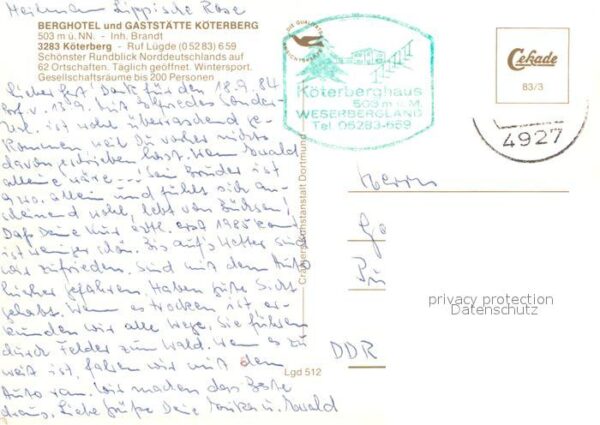 Heilmann Lippische Rose
BERGHOTEL und GASTSTÄTTE KÖTERBERG
503 m ü. NN. - Inh. Brandt
3283 Köterberg - Ruf Lügde (0 52 83) 6 59
Schönster Rundblick Norddeutschlands auf
62 Ortschaften. Täglich geöffnet. Wintersport.
Gesellschaftsräume bis 200 Personen
18.9.84
Dank für den
v. 17.9. mit
ist wohl überraschend ge-
kommen, weil Du vorher nichts
davon geschrieben hast. Wenn Ewald
alleine wäre --! Sein Bruder ist
allein und fühlt sich an-
scheinend wohl, lebt von Büchsen!
Daß Deine Kur evtl. erst 1985 kommt
ist weniger schön. Bis auf's Wetter sind
wir zufrieden. Sind mit dem Auto
sicher gefahren. Haben gute Sicht
gehabt. Wenn es trocken ist er-
kunden wir alle Wege. Sie führen
durch Felder zum Wald. Wenn es zu
weit ist, fahren wir mit dem
Auto ran. Wir machen das Beste
draus. Liebe Grüße Deine u. Ewald
Köterberghaus
503 m ü. M.
WESERBERGLAND
Tel. 05283-659
Cramers Kunstanstalt Dortmund
Lgd 512
Cekade
83/3
4927
Herrn
DDR
privacy protection
Datenschutz